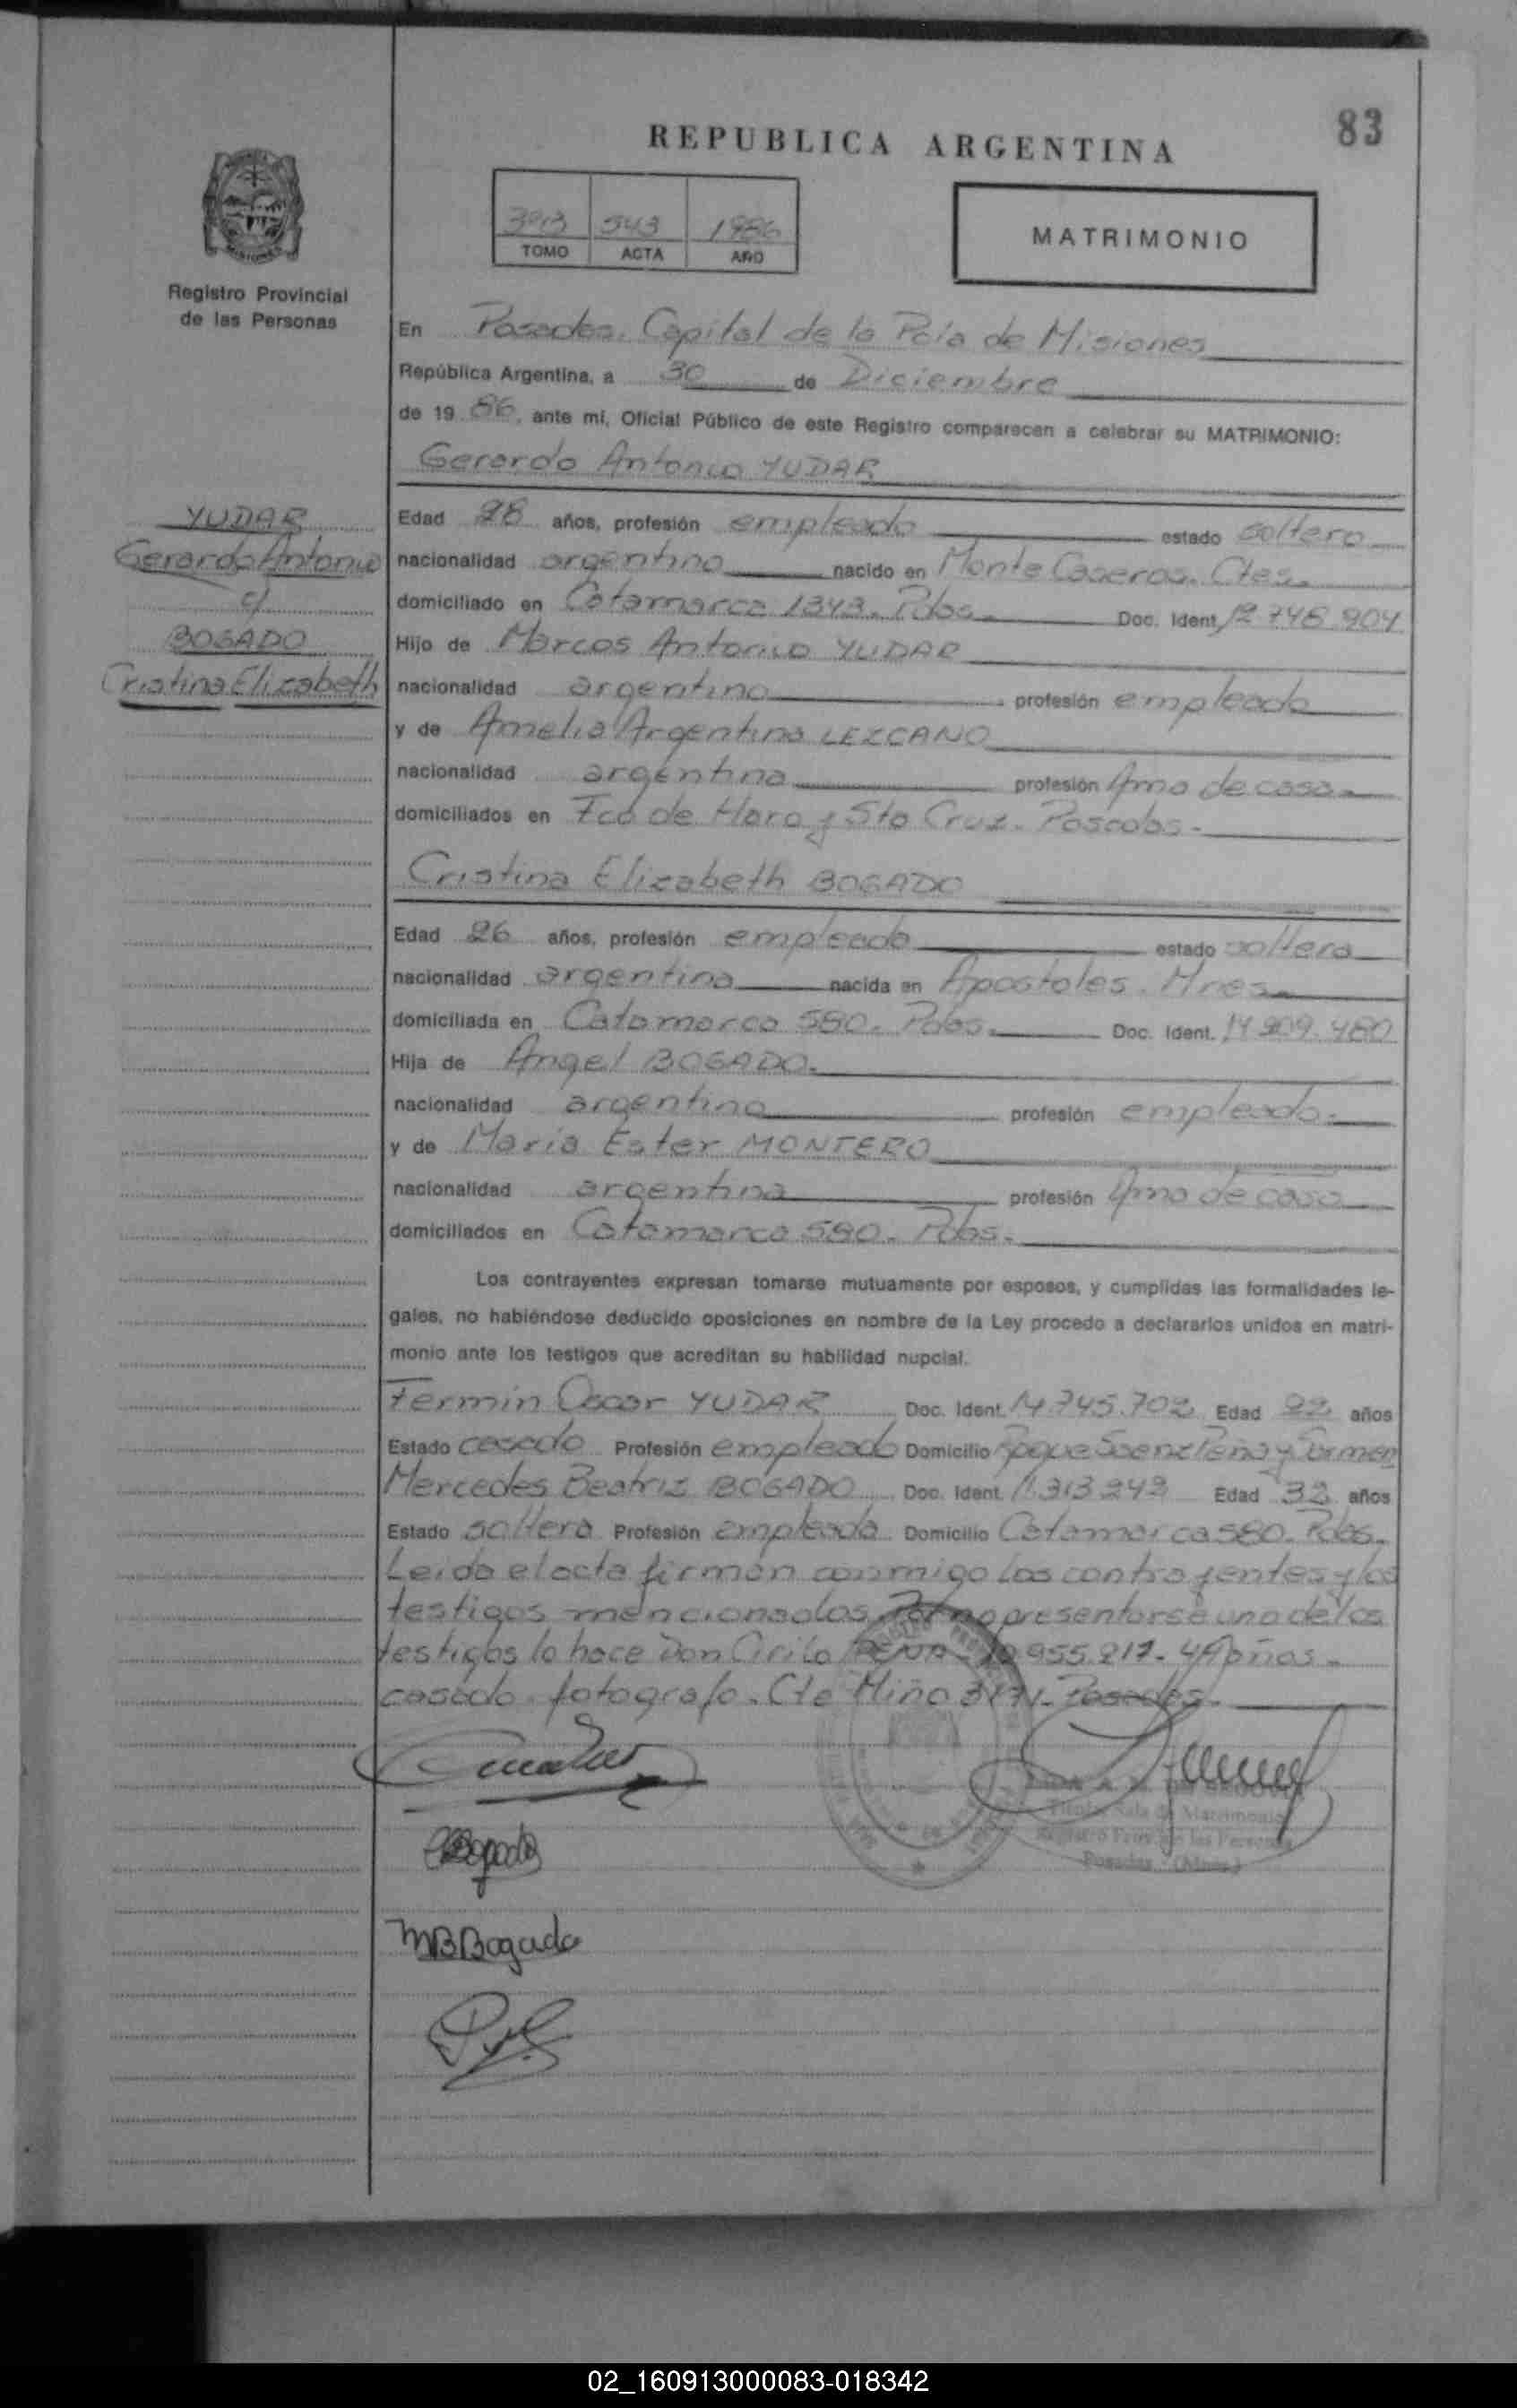 83
REPUBLICA ARGENTINA
543 1986
TOMO ACTA AÑO
MATRIMONIO
Registro Provincial
de las Personas
En Posadas. Capital de la Pcia de Misiones
República Argentina, a 30 de Diciembre
de 19 86, ante mí, Oficial Público de este Registro comparecen a celebrar su MATRIMONIO:
Gerardo Antonio YUDAR
YUDAR
Gerardo Antonio
c/
BOGADO
Cristina Elizabeth
Edad 28 años, profesión empleado estado soltero
nacionalidad argentino nacido en Monte Caseros. Ctes.
domiciliado en Catamarca 1343. Pdas. Doc. Ident. 12.748.904
Hijo de Marcos Antonio YUDAR
nacionalidad argentino profesión empleado
y de Amelia Argentina LEZCANO
nacionalidad argentina profesión Ama de casa
domiciliados en Fco de Haro y Sta Cruz. Posadas.
Cristina Elizabeth BOGADO
Edad 26 años, profesión empleada estado soltera
nacionalidad argentina nacida en Apostoles. Mnes.
domiciliada en Catamarca 580. Pdas. Doc. Ident. 14.209.480
Hija de Angel BOGADO.
nacionalidad argentino profesión empleado.
y de María Ester MONTERO
nacionalidad argentina profesión Ama de casa
domiciliados en Catamarca 580. Pdas.
Los contrayentes expresan tomarse mutuamente por esposos, y cumplidas las formalidades le-
gales, no habiéndose deducido oposiciones en nombre de la Ley procedo a declararlos unidos en matri-
monio ante los testigos que acreditan su habilidad nupcial.
Fermín Oscar YUDAR Doc. Ident. 14.745.702 Edad 22 años
Estado casado Profesión empleado Domicilio Roque Saenz Peña y
Mercedes Beatriz BOGADO Doc. Ident. 11.313.243 Edad 32 años
Estado soltera Profesión empleada Domicilio Catamarca 580. Pdas.
Leida el acta firman conmigo los contrayentes y los
testigos mencionados. Por no presentarse uno de los
testigos lo hace Don Cirilo PEÑA 955.217. años.
casado. fotografo. Cte Miño Posadas.
Bogado
MBBogado
Titular Sala de Matrimonio
Registro Prov. de las Personas
Posadas (Mnes.)
02_160913000083-018342